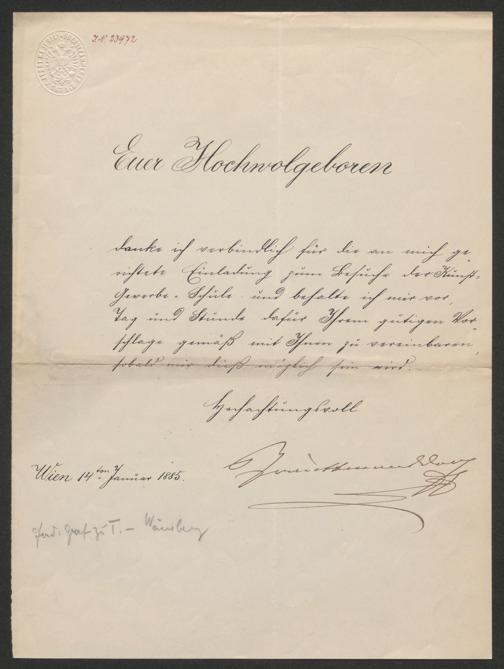 I.N. 23972
Euer Hochwolgeboren
danke ich verbindlich für die an mich ge-
richtete Einladung zum Besuche der Kunst-
Gewerbe-Schule und behalte ich mir vor,
Tag und Stunde dafür Ihrem gütigen Vor-
schlage gemäß mit Ihnen zu vereinbaren,
sobald mir dieß möglich sein wird.
Hochachtungsvoll
Wien 14ten Januar 1885.
Ferd. Graf zu T. –